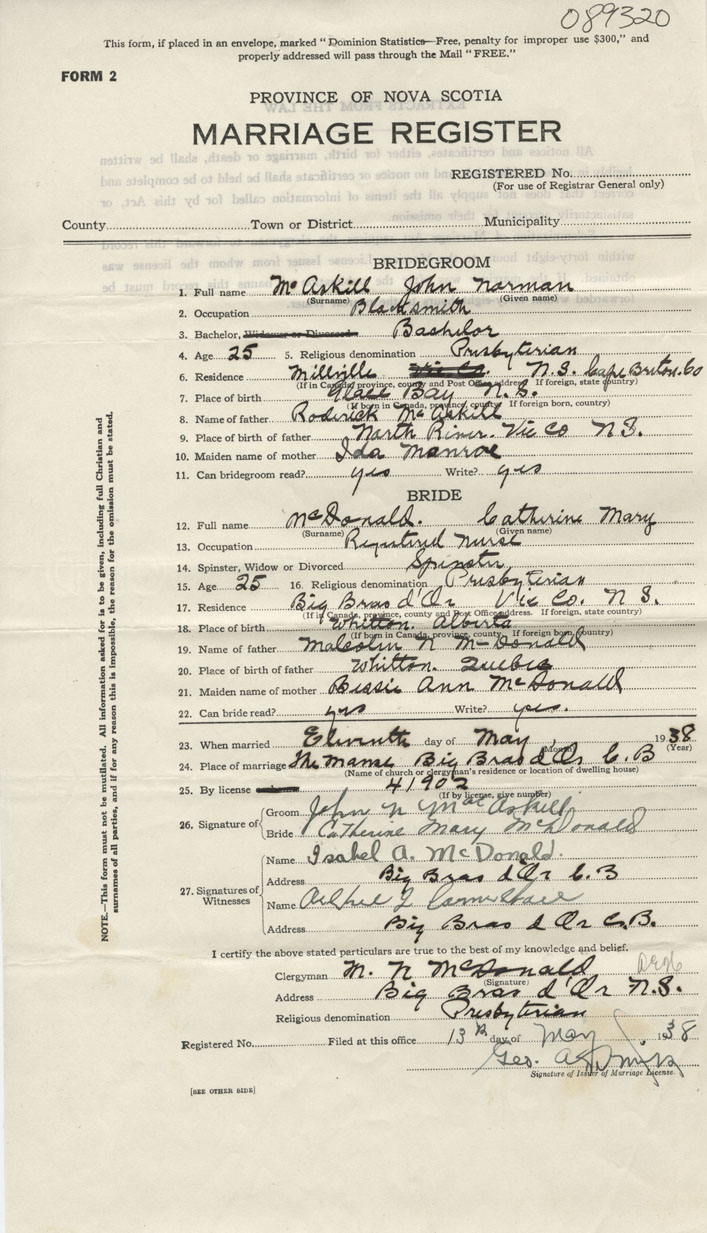 089320
This form, if placed in an envelope, marked "Dominion Statistics—Free, penalty for improper use $300," and
properly addressed will pass through the Mail "FREE."
FORM 2
PROVINCE OF NOVA SCOTIA
MARRIAGE REGISTER
REGISTERED No.
(For use of Registrar General only)
County Town or District Municipality
BRIDEGROOM
1. Full name McAskill John Norman
(Surname) (Given name)
2. Occupation Blacksmith
3. Bachelor, Widower or Divorced Bachelor
4. Age 25 5. Religious denomination Presbyterian
6. Residence Millville Vic Co. N.S. Cape Breton Co
(If in Canada, province, county and Post Office address. If foreign, state country)
7. Place of birth Glace Bay N.S.
(If born in Canada, province, county. If foreign born, country)
8. Name of father Roderick McAskill
9. Place of birth of father North River. Vic Co N.S.
10. Maiden name of mother Ida Monroe
11. Can bridegroom read? yes Write? yes
BRIDE
12. Full name McDonald. Catherine Mary
(Surname) (Given name)
13. Occupation Registered Nurse
14. Spinster, Widow or Divorced Spinster
15. Age 25 16. Religious denomination Presbyterian
17. Residence Big Bras d'Or Vic Co. N.S.
(If in Canada, province, county and Post Office address. If foreign, state country)
18. Place of birth Whitton. Alberta
(If born in Canada, province, county. If foreign born, country)
19. Name of father Malcolm N McDonald
20. Place of birth of father Whitton. Quebec
21. Maiden name of mother Bessie Ann McDonald
22. Can bride read? yes Write? yes.
23. When married Eleventh day of May 1938
(Month) (Year)
24. Place of marriage The Manse Big Bras d'Or C.B
(Name of church or clergyman's residence or location of dwelling house)
25. By license 41902
(If by license, give number)
26. Signature of Groom John N MacAskill
Bride Catherine Mary McDonald
27. Signatures of Witnesses
Name Isabel A. McDonald.
Address Big Bras d'Or C.B
Name
Address Big Bras d Or C.B.
I certify the above stated particulars are true to the best of my knowledge and belief.
Clergyman M. N McDonald
(Signature)
Address Big Bras d'Or N.S.
Religious denomination Presbyterian
Registered No. Filed at this office 13th day of May 1938
Geo. A.
Signature of Issuer of Marriage License.
[SEE OTHER SIDE]
NOTE.—This form must not be mutilated. All information asked for is to be given, including full Christian and
surnames of all parties, and if for any reason this is impossible, the reason for the omission must be stated.